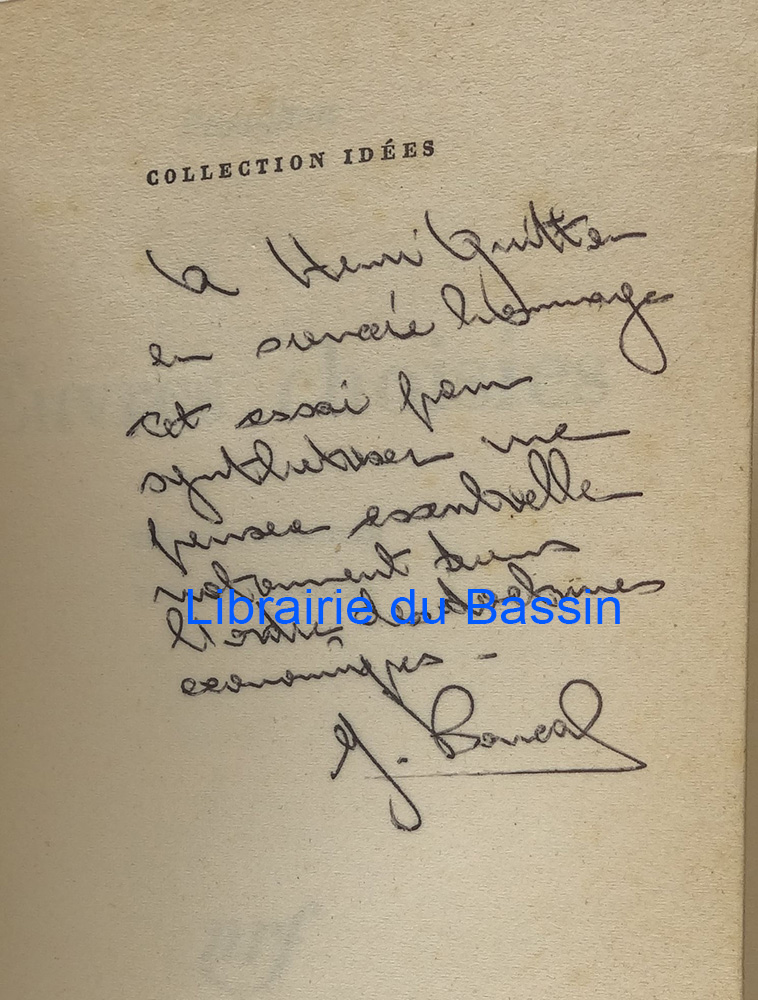 COLLECTION IDÉES
à Henri Guitton
en sincère hommage
cet essai pour
synthétiser une
pensée essentielle
notamment dans
l'ordre des doctrines
Librairie du Bassin
économiques -
J. Bancal
nrf